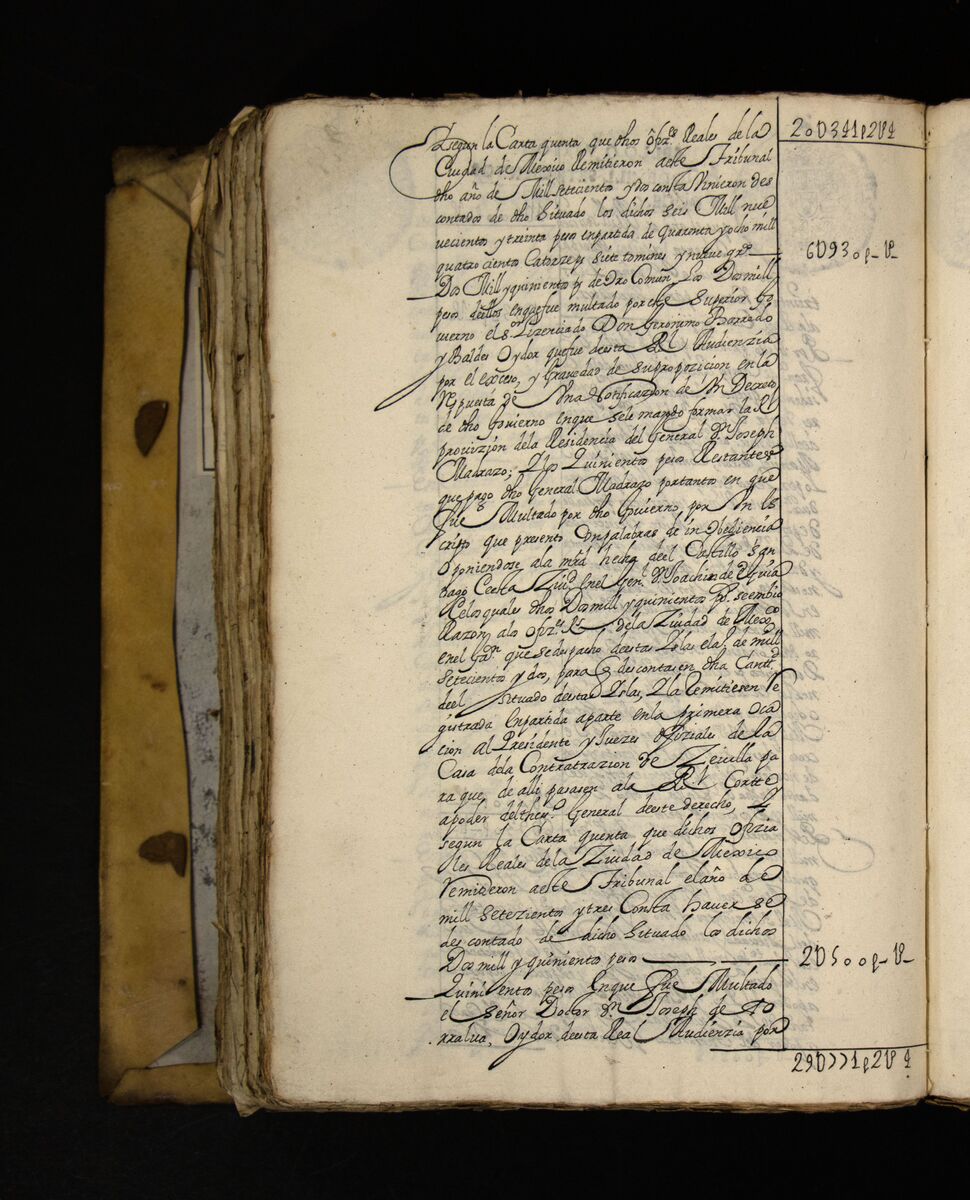 20U341p2U4
Segun la Carta quenta que dhos ofiz.s Reales de la
Ciudad de Mexico Remitieron aeste Tribunal
dho año de Mill setecientos y dos consta Vinieron des
contados de dho Situado los dichos seis Mill nue
vecientos y treinta pesos en partida de quarenta y ocho mill
quatrocientos Catorze ps siete tomines y nueve gr.s
6U930p-U-
Dos Mill y quinientos ps de Oro Comun, Los Dos mill
pesos dellos en que fue multado por este Superior Go
vierno el s.r Lizenciado Don Geronimo Barredo
y Baldes Oydor que fue desta Rl Audienzia
por el exceso, y Gravedad de su propozicion en la
Respuesta de Vna Notificazion de Vn Decreto
de dho Govierno en que se le mando formar la Rl
provizion dela Residencia del General D. Joseph
Madrazo; Y los Quinientos pesos Restantes
que pago dho General Madrazo por tanto en que
fue Multado por dho Govierno, por Vn es
cripto que presento Con palabras de in obediencia
Oponiendose ala mrd hecha deel Castillo San
tiago Cerca Ziu.d Enel Gen.l D. Joachin de
Delos quales dhos Dos mill y quinientos ps. se embio
Razon alos ofiz.s Rs dela Ziudad de Mex.co
enel que se despacho destas Yslas el a.o de mill
setecientos y dos, para q descontasen dha Cantt.d
deel Situado destas Yslas, Y la Remitiesen Re
gistrada en partida aparte en la primera Oca
cion al Presidente y Juezes ofiziales de la
Casa dela Contratazion de Zevilla pa
ra que de alli pasasen ala Rl Cortte
a poder del thes.o General deeste derecho, Y
segun la Carta quenta que dichos Ofizia
les Reales dela Ziudad de Mexico
Remitieron aeste Tribunal el año de
mill setezientos y tres Consta haverse
descontado de dicho Situado los dichos
Dos mill y quinientos pesos
2U500p-U-
Quinientos pesos En que fue Multado
el señor Doctor D.n Joseph de To
rralva, Oydor desta Real Audienzia por
29U771p2U4